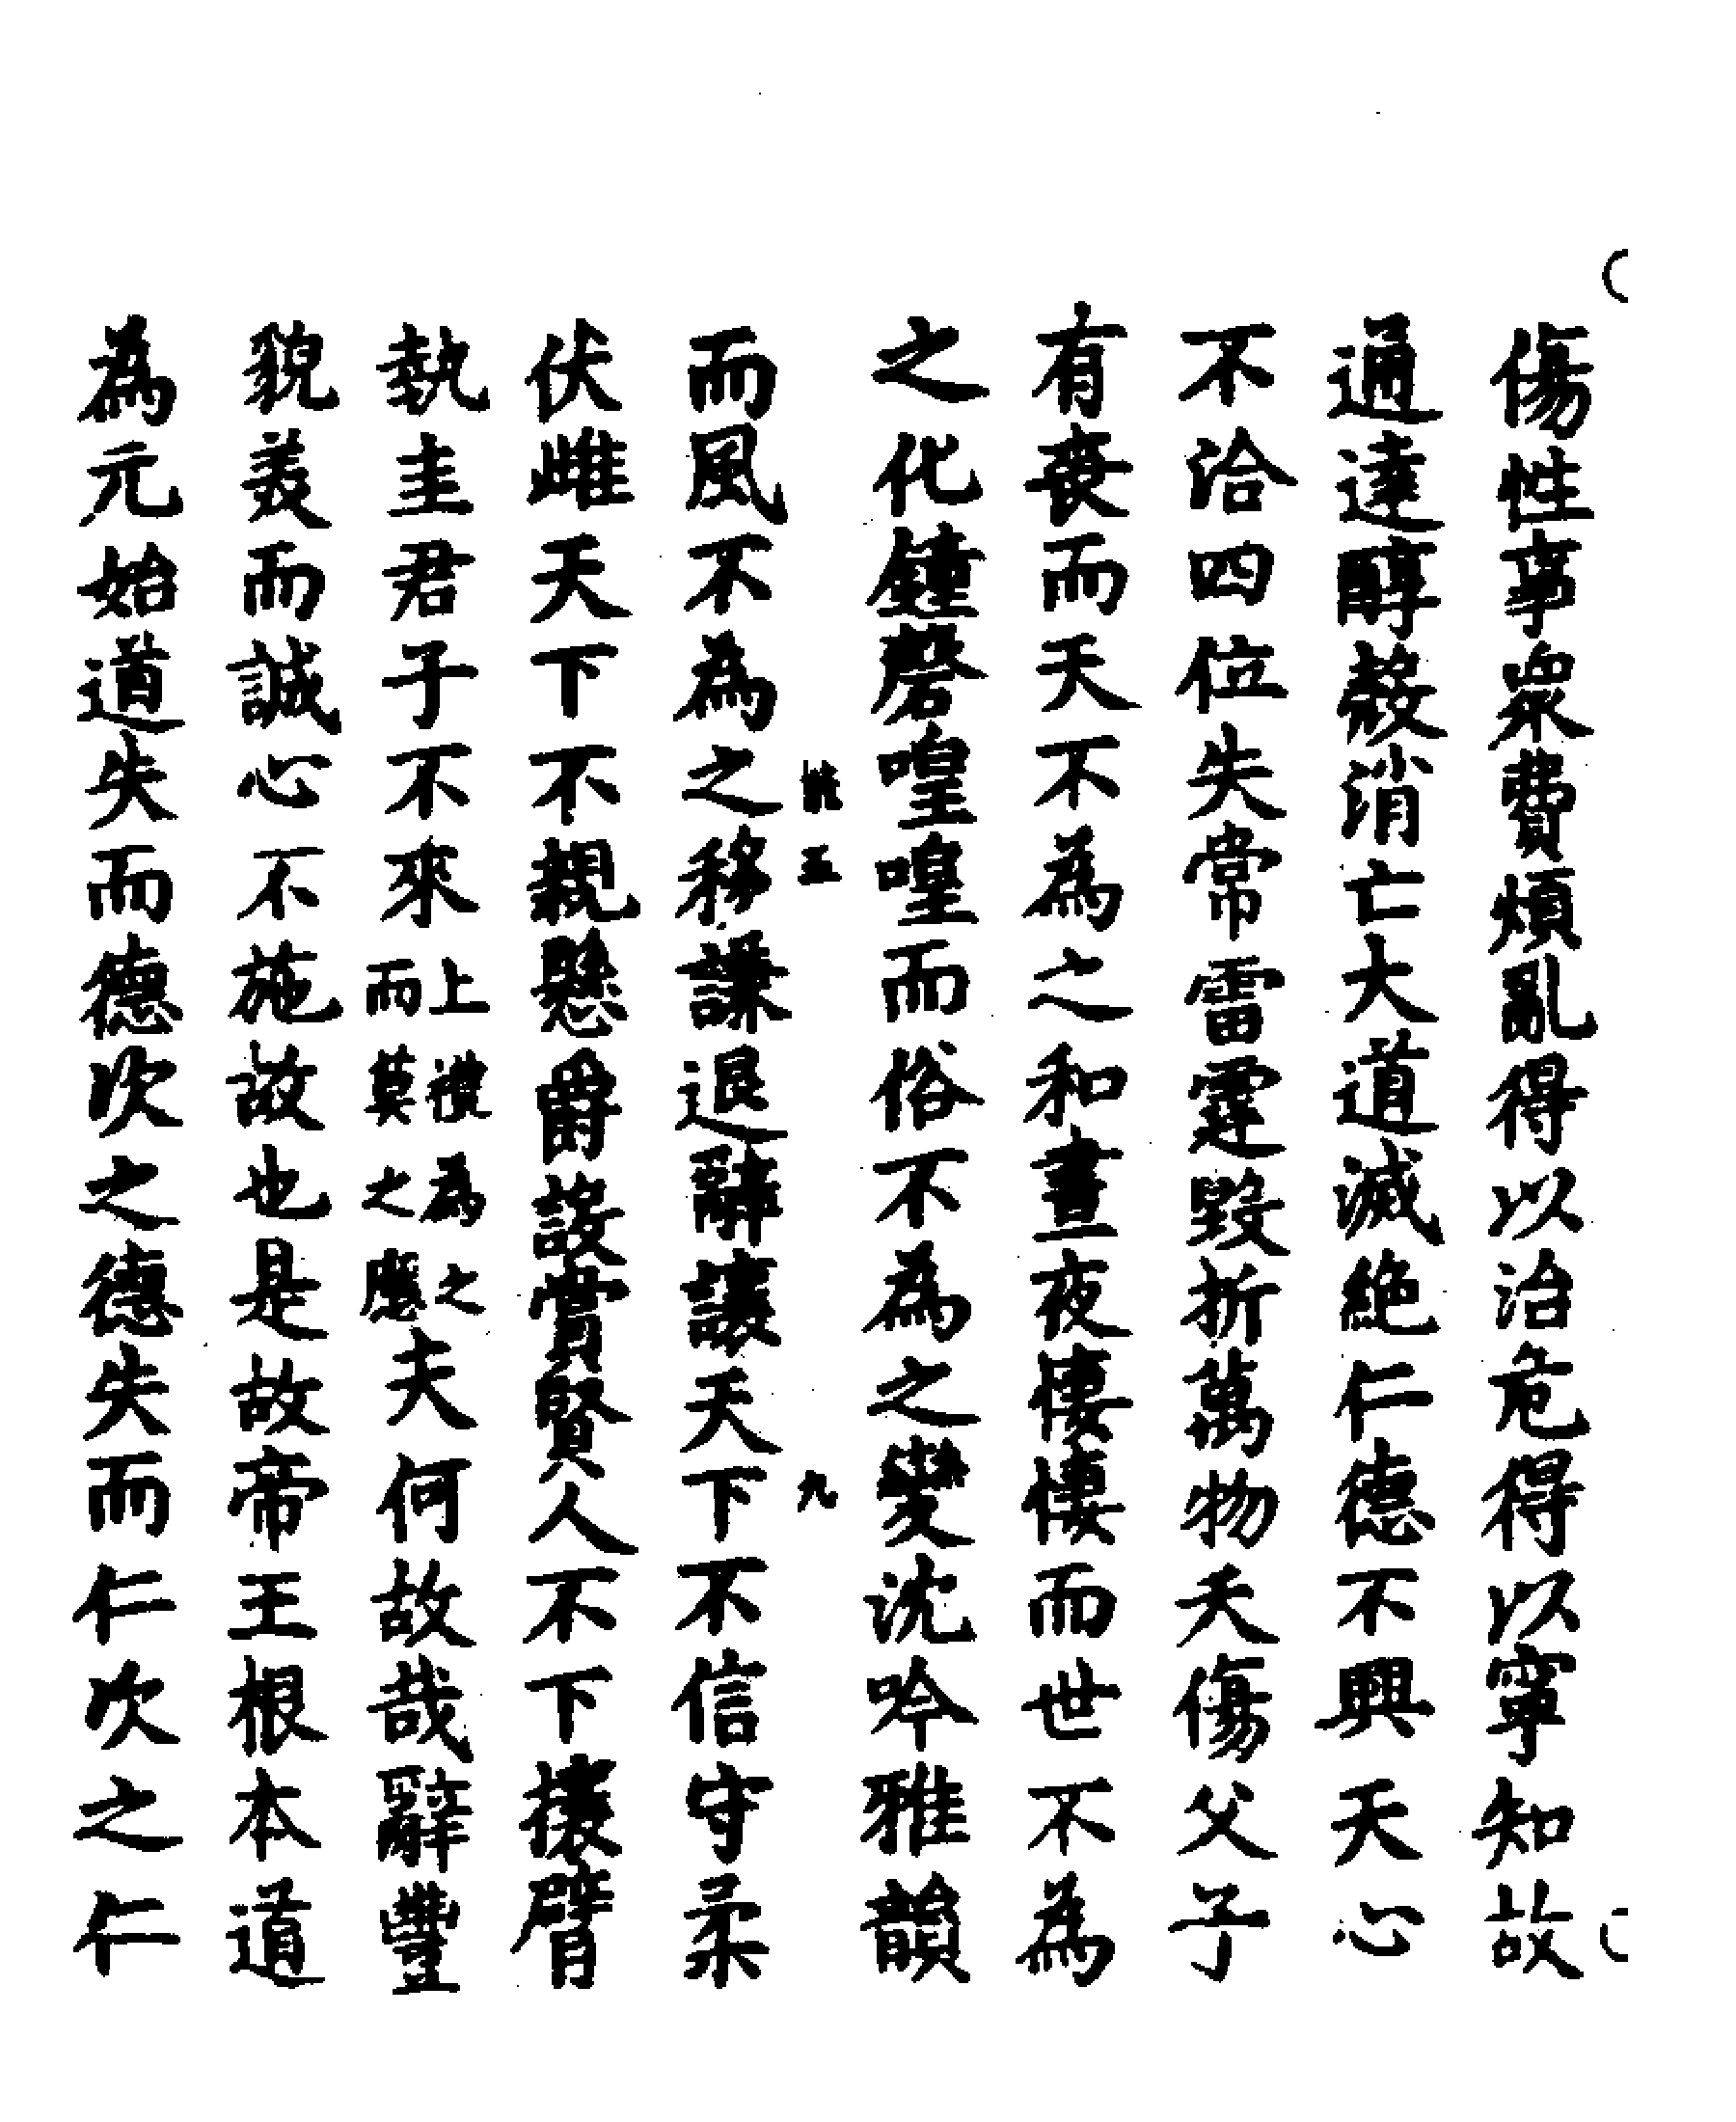 傷性事眾費煩亂得以治危得以寧知故
通達醇慤消亡大道滅絕仁德不興天心
不洽四位失常雷霆毀折萬物夭傷父子
有喪而天不為之和晝夜悽悽而世不為
之化鐘磬喤喤而俗不為之變沈吟雅韻
五 九
而風不為之移謙退辭讓天下不信守柔
伏雌天下不親懸爵設賞賢人不下攘臂
執圭君子不來上禮為之而莫之應夫何故哉辭豐
貌美而誠心不施故也是故帝王根本道
為元始道失而德次之德失而仁次之仁